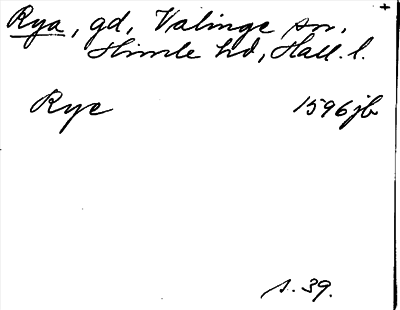 Rya, gd, Valinge sn,
Himle hd, Hall. l.
Rye 1596 jb
s. 39.